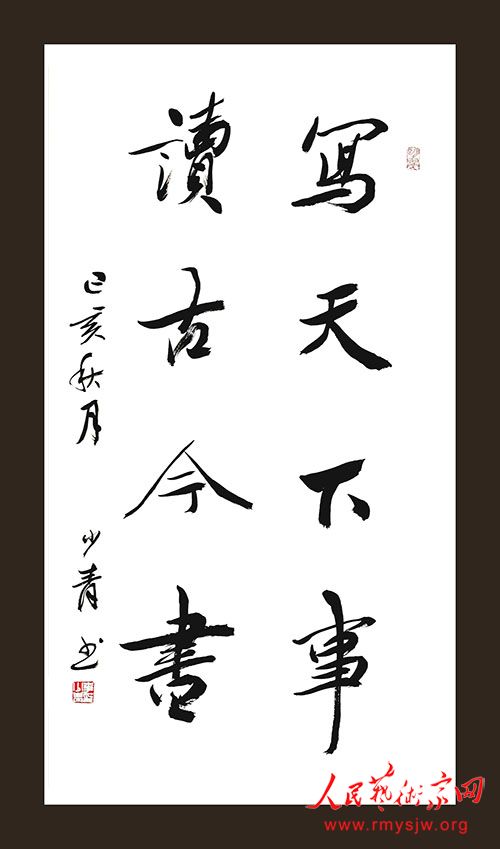 寫天下事
讀古今書
己亥秋月
少青书
人民藝術家网
www.rmysjw.org